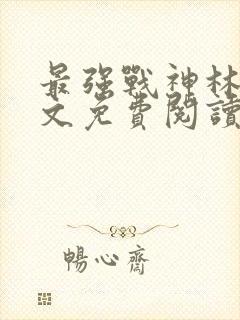 最强戰神林
文免費閱讀
暢心齋